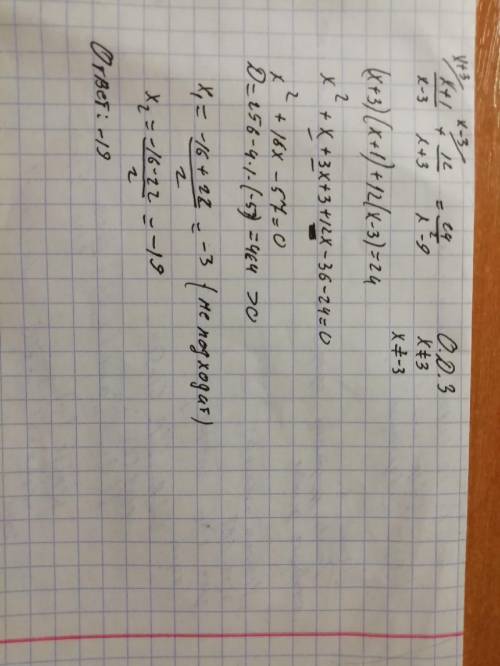 x+3/ x+1/x-3 + x-3/ 12/x+3 = 24/x²-9
О.D.З
x≠3
x≠-3
(x+3)(x+1)+12(x-3)=24
x²+x+3x+3+12x-36-24=0
x²+16x-57=0
D=256-4·1·(-57)=484 >0
x₁ = -16+22/2 = -3 (не подходит)
x₂ = -16-22/2 = -19
Ответ: -19